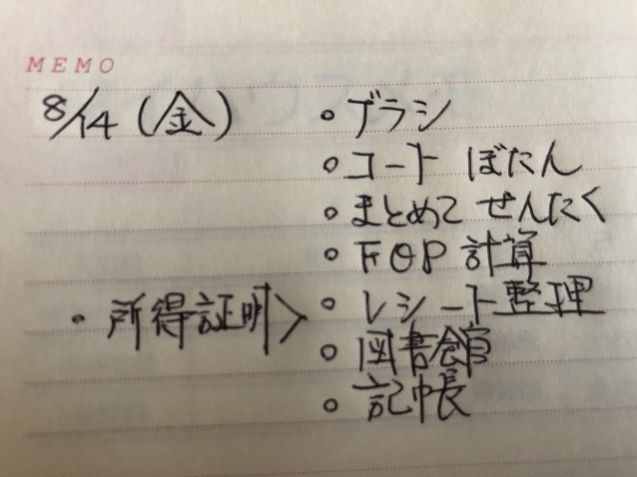 MEMO
8/14 (金)
。ブラシ
。コート ぼたん
。まとめて せんたく
。FOP 計算
・所得証明>
。レシート整理
。図書館
。記帳